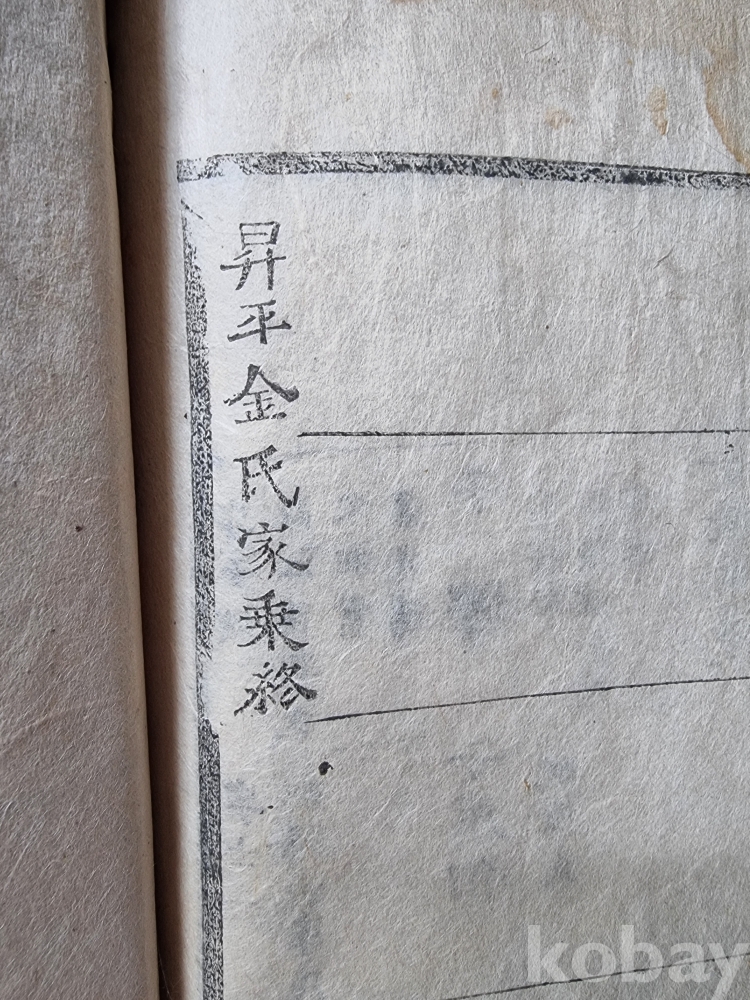 昇平金氏家乗終
kobay